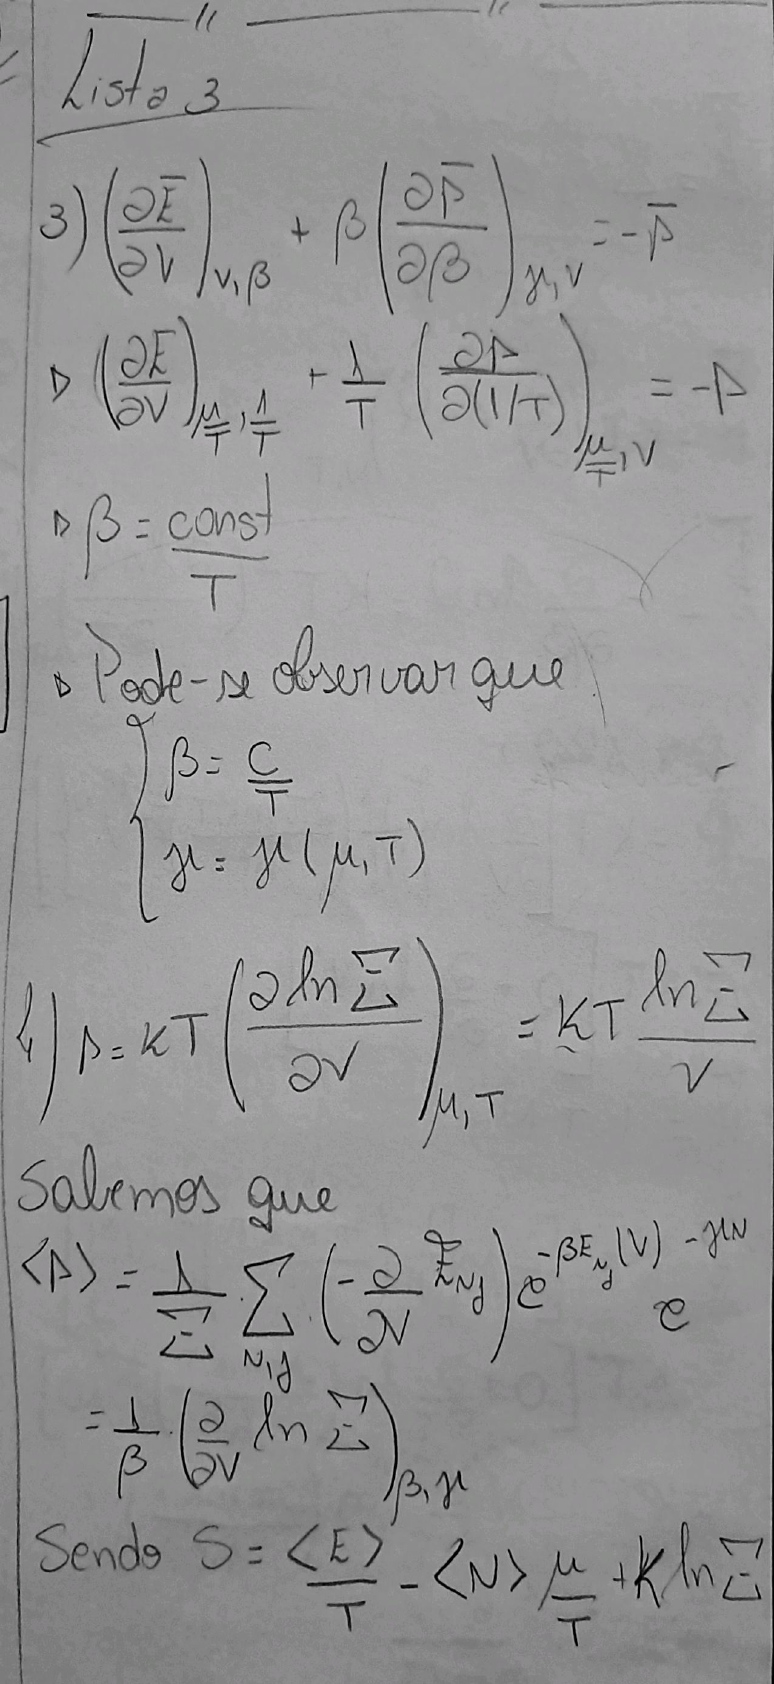 Lista 3
3) (∂Ē/∂V)_{V,β} + β(∂p̄/∂β)_{γ,V} = -p̄
▷ (∂E/∂V)_{μ/T, 1/T} + 1/T (∂p/∂(1/T))_{μ/T, V} = -p
▷ β = const/T
▷ Pode-se observar que
{ β = C/T
γ = γ(μ, T)
4) p = KT (∂ ln Ξ/∂V)_{μ,T} = KT ln Ξ/V
Sabemos que
<p> = 1/Ξ · Σ_{N,j} (-∂/∂V E_{Nj}) e^{-βE_{Nj}(V)} e^{-γN}
= 1/β · (∂/∂V ln Ξ)_{β,γ}
Sendo S = <E>/T - <N> μ/T + K ln Ξ